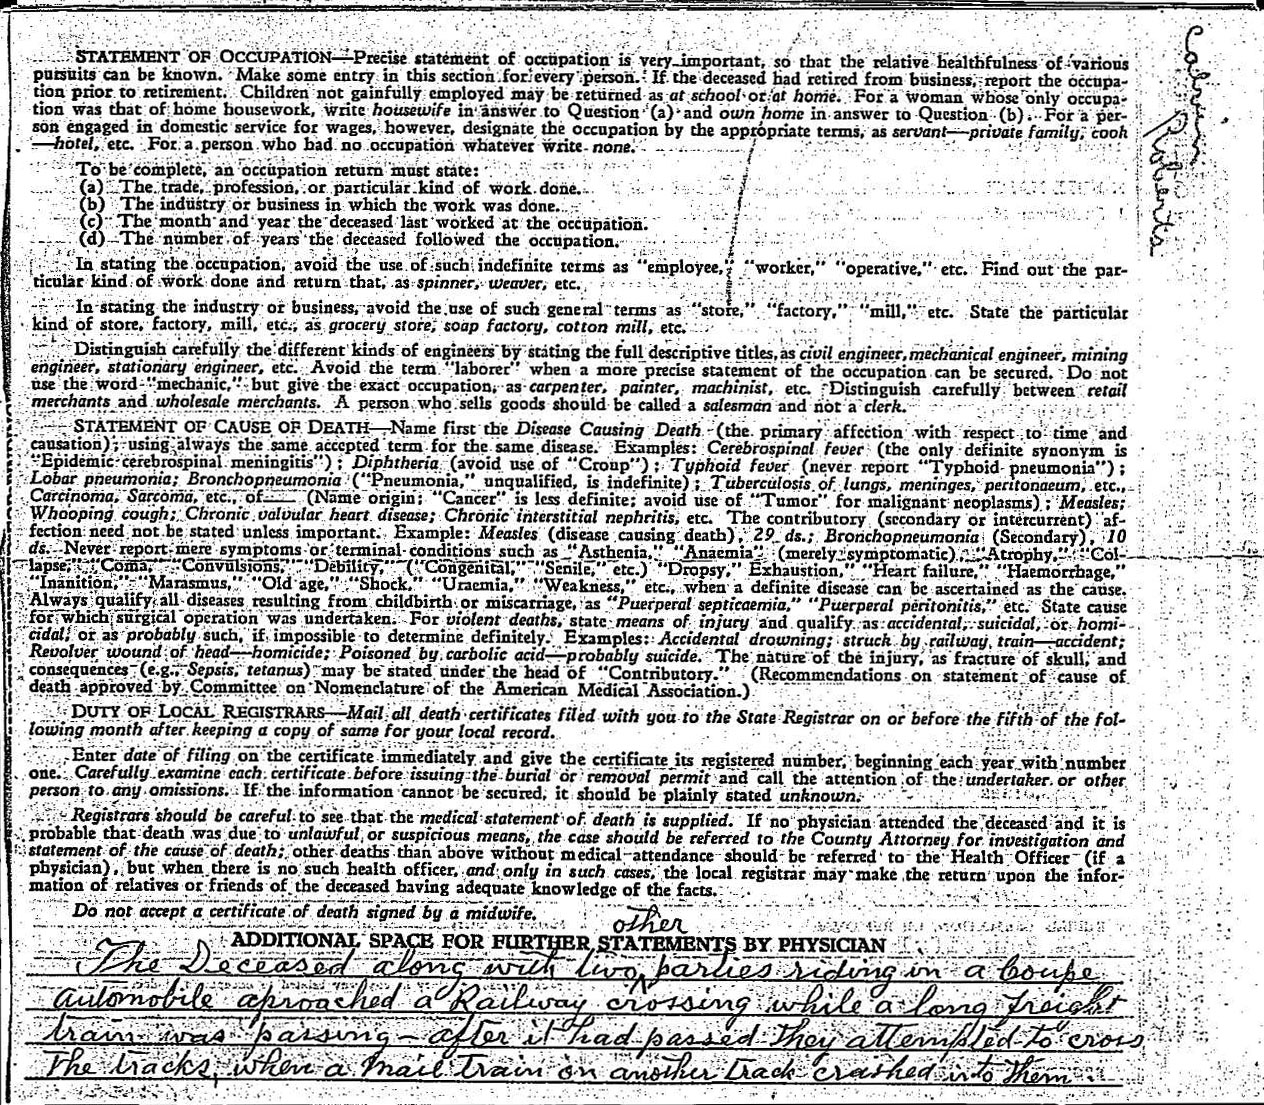 Calvin Roberts
STATEMENT OF OCCUPATION—Precise statement of occupation is very important, so that the relative healthfulness of various
pursuits can be known. Make some entry in this section for every person. If the deceased had retired from business, report the occupa-
tion prior to retirement. Children not gainfully employed may be returned as at school or at home. For a woman whose only occupa-
tion was that of home housework, write housewife in answer to Question (a) and own home in answer to Question (b). For a per-
son engaged in domestic service for wages, however, designate the occupation by the appropriate terms, as servant—private family, cook
—hotel, etc. For a person who had no occupation whatever write none.
To be complete, an occupation return must state:
(a) The trade, profession, or particular kind of work done.
(b) The industry or business in which the work was done.
(c) The month and year the deceased last worked at the occupation.
(d) The number of years the deceased followed the occupation.
In stating the occupation, avoid the use of such indefinite terms as "employee," "worker," "operative," etc. Find out the par-
ticular kind of work done and return that, as spinner, weaver, etc.
In stating the industry or business, avoid the use of such general terms as "store," "factory," "mill," etc. State the particular
kind of store, factory, mill, etc., as grocery store, soap factory, cotton mill, etc.
Distinguish carefully the different kinds of engineers by stating the full descriptive titles, as civil engineer, mechanical engineer, mining
engineer, stationary engineer, etc. Avoid the term "laborer" when a more precise statement of the occupation can be secured. Do not
use the word "mechanic," but give the exact occupation, as carpenter, painter, machinist, etc. Distinguish carefully between retail
merchants and wholesale merchants. A person who sells goods should be called a salesman and not a clerk.
STATEMENT OF CAUSE OF DEATH—Name first the Disease Causing Death (the primary affection with respect to time and
causation); using always the same accepted term for the same disease. Examples: Cerebrospinal fever (the only definite synonym is
"Epidemic cerebrospinal meningitis"); Diphtheria (avoid use of "Croup"); Typhoid fever (never report "Typhoid pneumonia");
Lobar pneumonia; Bronchopneumonia ("Pneumonia," unqualified, is indefinite); Tuberculosis of lungs, meninges, peritonaeum, etc.,
Carcinoma, Sarcoma, etc., of—— (Name origin; "Cancer" is less definite; avoid use of "Tumor" for malignant neoplasms); Measles;
Whooping cough; Chronic valvular heart disease; Chronic interstitial nephritis, etc. The contributory (secondary or intercurrent) af-
fection need not be stated unless important. Example: Measles (disease causing death), 29 ds.; Bronchopneumonia (Secondary), 10
ds. Never report mere symptoms or terminal conditions such as "Asthenia," "Anaemia" (merely symptomatic), "Atrophy," "Col-
lapse," "Coma," "Convulsions," "Debility," ("Congenital," "Senile," etc.) "Dropsy," Exhaustion," "Heart failure," "Haemorrhage,"
"Inanition," "Marasmus," "Old age," "Shock," "Uraemia," "Weakness," etc., when a definite disease can be ascertained as the cause.
Always qualify all diseases resulting from childbirth or miscarriage, as "Puerperal septicaemia," "Puerperal peritonitis," etc. State cause
for which surgical operation was undertaken. For violent deaths, state means of injury and qualify as accidental, suicidal, or homi-
cidal, or as probably such, if impossible to determine definitely. Examples: Accidental drowning; struck by railway train—accident;
Revolver wound of head—homicide; Poisoned by carbolic acid—probably suicide. The nature of the injury, as fracture of skull, and
consequences (e.g., Sepsis, tetanus) may be stated under the head of "Contributory." (Recommendations on statement of cause of
death approved by Committee on Nomenclature of the American Medical Association.)
DUTY OF LOCAL REGISTRARS—Mail all death certificates filed with you to the State Registrar on or before the fifth of the fol-
lowing month after keeping a copy of same for your local record.
Enter date of filing on the certificate immediately and give the certificate its registered number, beginning each year with number
one. Carefully examine each certificate before issuing the burial or removal permit and call the attention of the undertaker or other
person to any omissions. If the information cannot be secured, it should be plainly stated unknown.
Registrars should be careful to see that the medical statement of death is supplied. If no physician attended the deceased and it is
probable that death was due to unlawful or suspicious means, the case should be referred to the County Attorney for investigation and
statement of the cause of death; other deaths than above without medical attendance should be referred to the Health Officer (if a
physician), but when there is no such health officer, and only in such cases, the local registrar may make the return upon the infor-
mation of relatives or friends of the deceased having adequate knowledge of the facts.
Do not accept a certificate of death signed by a midwife.
ADDITIONAL SPACE FOR FURTHER STATEMENTS BY PHYSICIAN
other
The Deceased along with two parties riding in a Coupe
automobile aproached a Railway crossing while a long freight
train was passing – after it had passed they attempted to cross
the tracks, when a mail train on another track crashed into them.